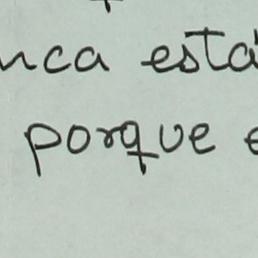 nca está
porque e